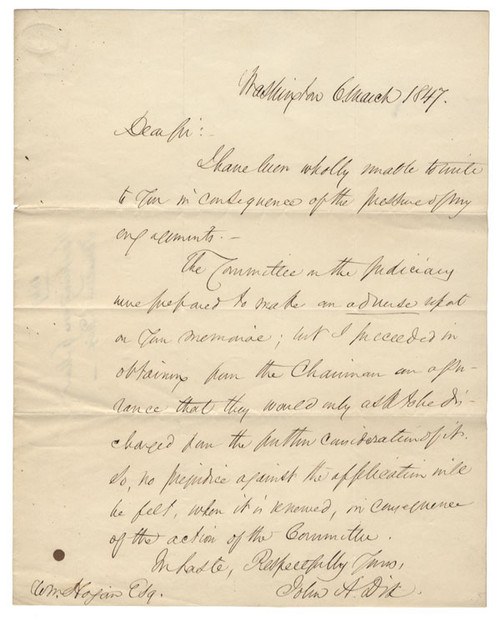 Washington 6 March 1847.
Dear Sir:
I have been wholly unable to write
to You in consequence of the pressure of my
engagements. —
The Committee on the Judiciary
were prepared to make an adverse report
on Your memorial; but I succeeded in
obtaining from the Chairman an assu-
rance that they would only ask to be dis-
charged from the further consideration of it.
So, no prejudice against the application will
be felt, when it is renewed, in consequence
of the action of the Committee.
In haste, Respectfully Yours,
John A. Dix.
Wm. Hogan Esq.